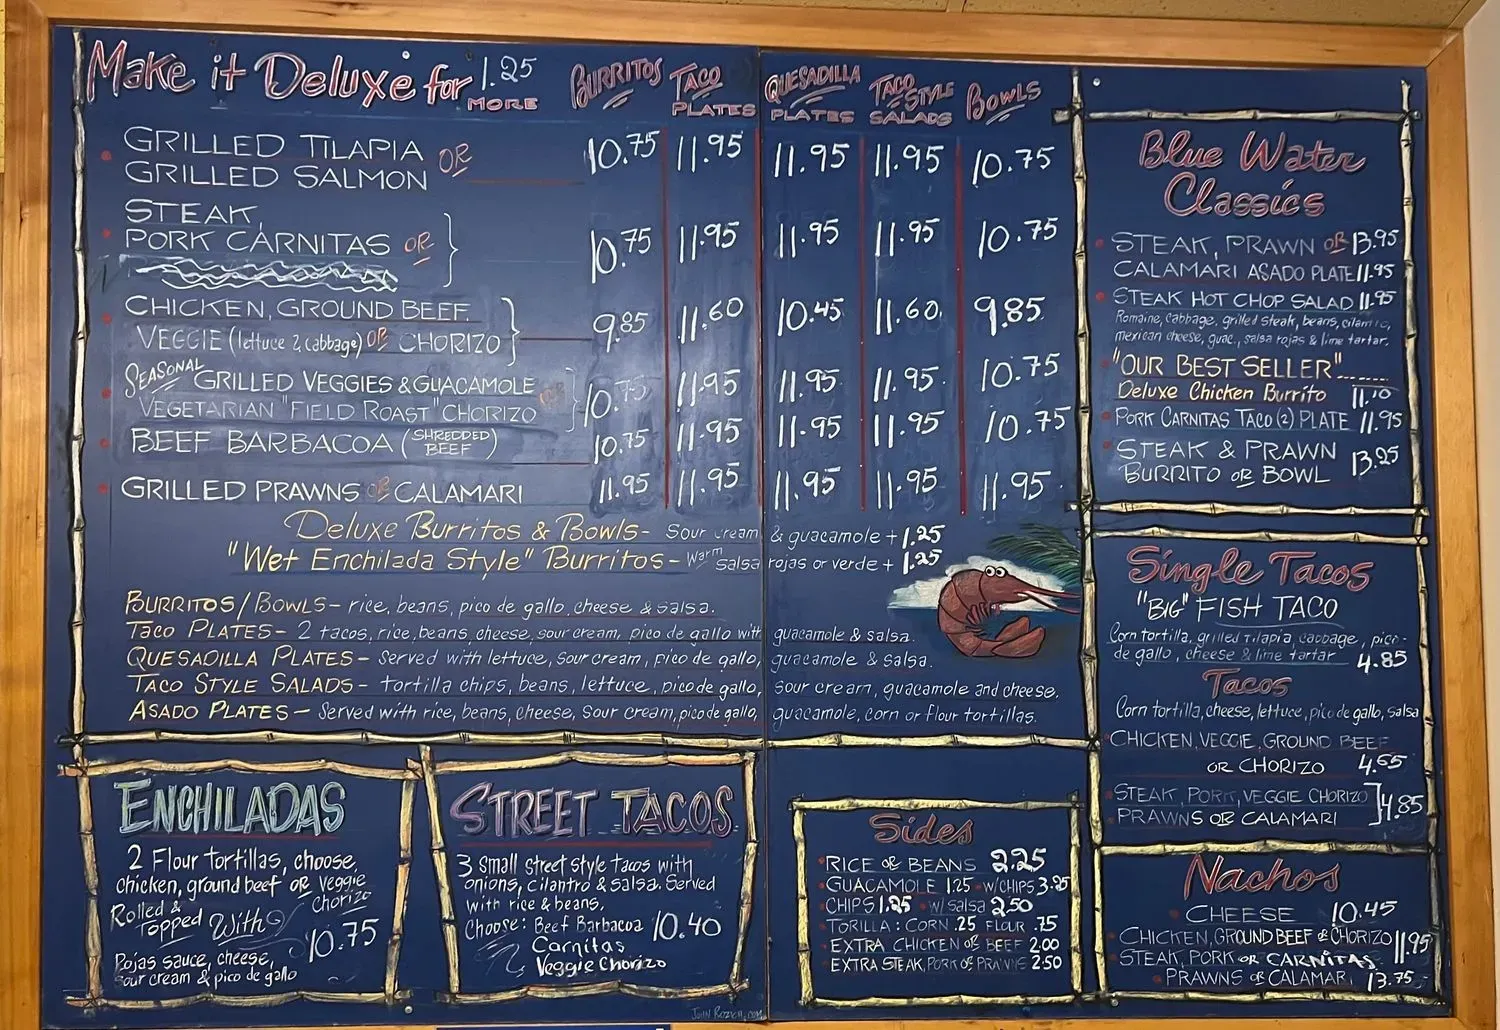 Make it Deluxe for 1.25 MORE
BURRITOS
TACO PLATES
QUESADILLA PLATES
TACO STYLE SALADS
BOWLS
GRILLED TILAPIA OR
GRILLED SALMON
10.75 11.95 11.95 11.95 10.75
STEAK,
PORK CARNITAS OR
10.75 11.95 11.95 11.95 10.75
CHICKEN, GROUND BEEF,
VEGGIE (lettuce & cabbage) OR CHORIZO
9.85 11.60 10.45 11.60 9.85
SEASONAL GRILLED VEGGIES & GUACAMOLE OR
VEGETARIAN "FIELD ROAST" CHORIZO
10.75 11.95 11.95 11.95 10.75
BEEF BARBACOA (SHREDDED BEEF)
10.75 11.95 11.95 11.95 10.75
GRILLED PRAWNS OR CALAMARI
11.95 11.95 11.95 11.95 11.95
Deluxe Burritos & Bowls- Sour cream & guacamole + 1.25
"Wet Enchilada Style" Burritos- Warm salsa rojas or verde + 1.25
BURRITOS/BOWLS- rice, beans, pico de gallo, cheese & salsa.
TACO PLATES- 2 tacos, rice, beans, cheese, sour cream, pico de gallo with guacamole & salsa.
QUESADILLA PLATES- Served with lettuce, sour cream, pico de gallo, guacamole & salsa.
TACO STYLE SALADS- tortilla chips, beans, lettuce, pico de gallo, sour cream, guacamole and cheese.
ASADO PLATES- Served with rice, beans, cheese, sour cream, pico de gallo, guacamole, corn or flour tortillas.
Blue Water
Classics
STEAK, PRAWN OR 13.95
CALAMARI ASADO PLATE 11.95
STEAK HOT CHOP SALAD 11.95
Romaine, cabbage, grilled steak, beans, cilantro,
mexican cheese, guac., salsa rojas & lime tartar.
"OUR BEST SELLER"
Deluxe Chicken Burrito 11.10
PORK CARNITAS TACO (2) PLATE 11.95
STEAK & PRAWN
BURRITO OR BOWL 13.25
Single Tacos
"BIG" FISH TACO
Corn tortilla, grilled tilapia, cabbage, pico-
de gallo, cheese & lime tartar 4.85
Tacos
Corn tortilla, cheese, lettuce, pico de gallo, salsa
CHICKEN, VEGGIE, GROUND BEEF
OR CHORIZO 4.65
STEAK, PORK, VEGGIE CHORIZO
PRAWNS OR CALAMARI
4.85
Nachos
CHEESE 10.45
CHICKEN, GROUND BEEF OR CHORIZO
STEAK, PORK OR CARNITAS
11.95
PRAWNS OR CALAMARI 13.75
ENCHILADAS
2 Flour tortillas, choose,
chicken, ground beef OR Veggie
Chorizo
Rolled &
Topped With
10.75
Rojas sauce, cheese,
sour cream & pico de gallo
STREET TACOS
3 small street style tacos with
onions, cilantro & salsa. Served
with rice & beans.
Choose: Beef Barbacoa 10.40
Carnitas
Veggie Chorizo
Sides
RICE OR BEANS 2.25
GUACAMOLE 1.25 W/CHIPS 3.95
CHIPS 1.25 W/SALSA 2.50
TORILLA: CORN .25 FLOUR .75
EXTRA CHICKEN OR BEEF 2.00
EXTRA STEAK, PORK OR PRAWNS 2.50
JOHN ROZICH.COM